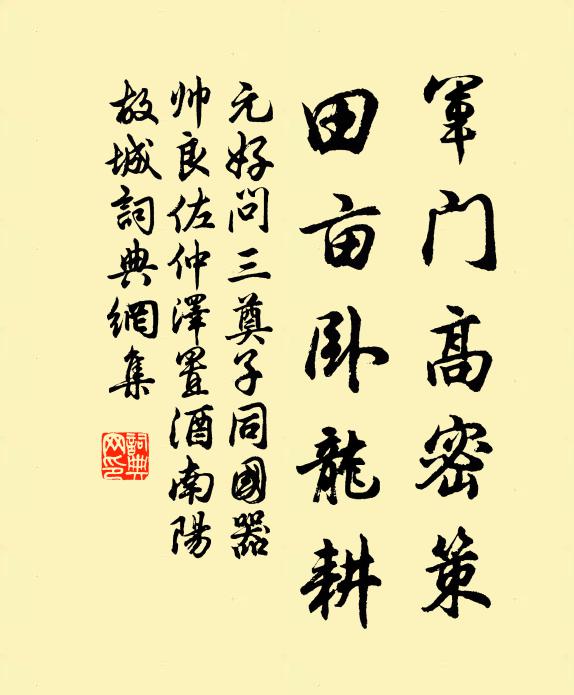 軍门高密策
田亩卧龍耕
元好問三奠子同國器
帅良佐仲澤置酒南陽
故城詞典網集
詞典網印